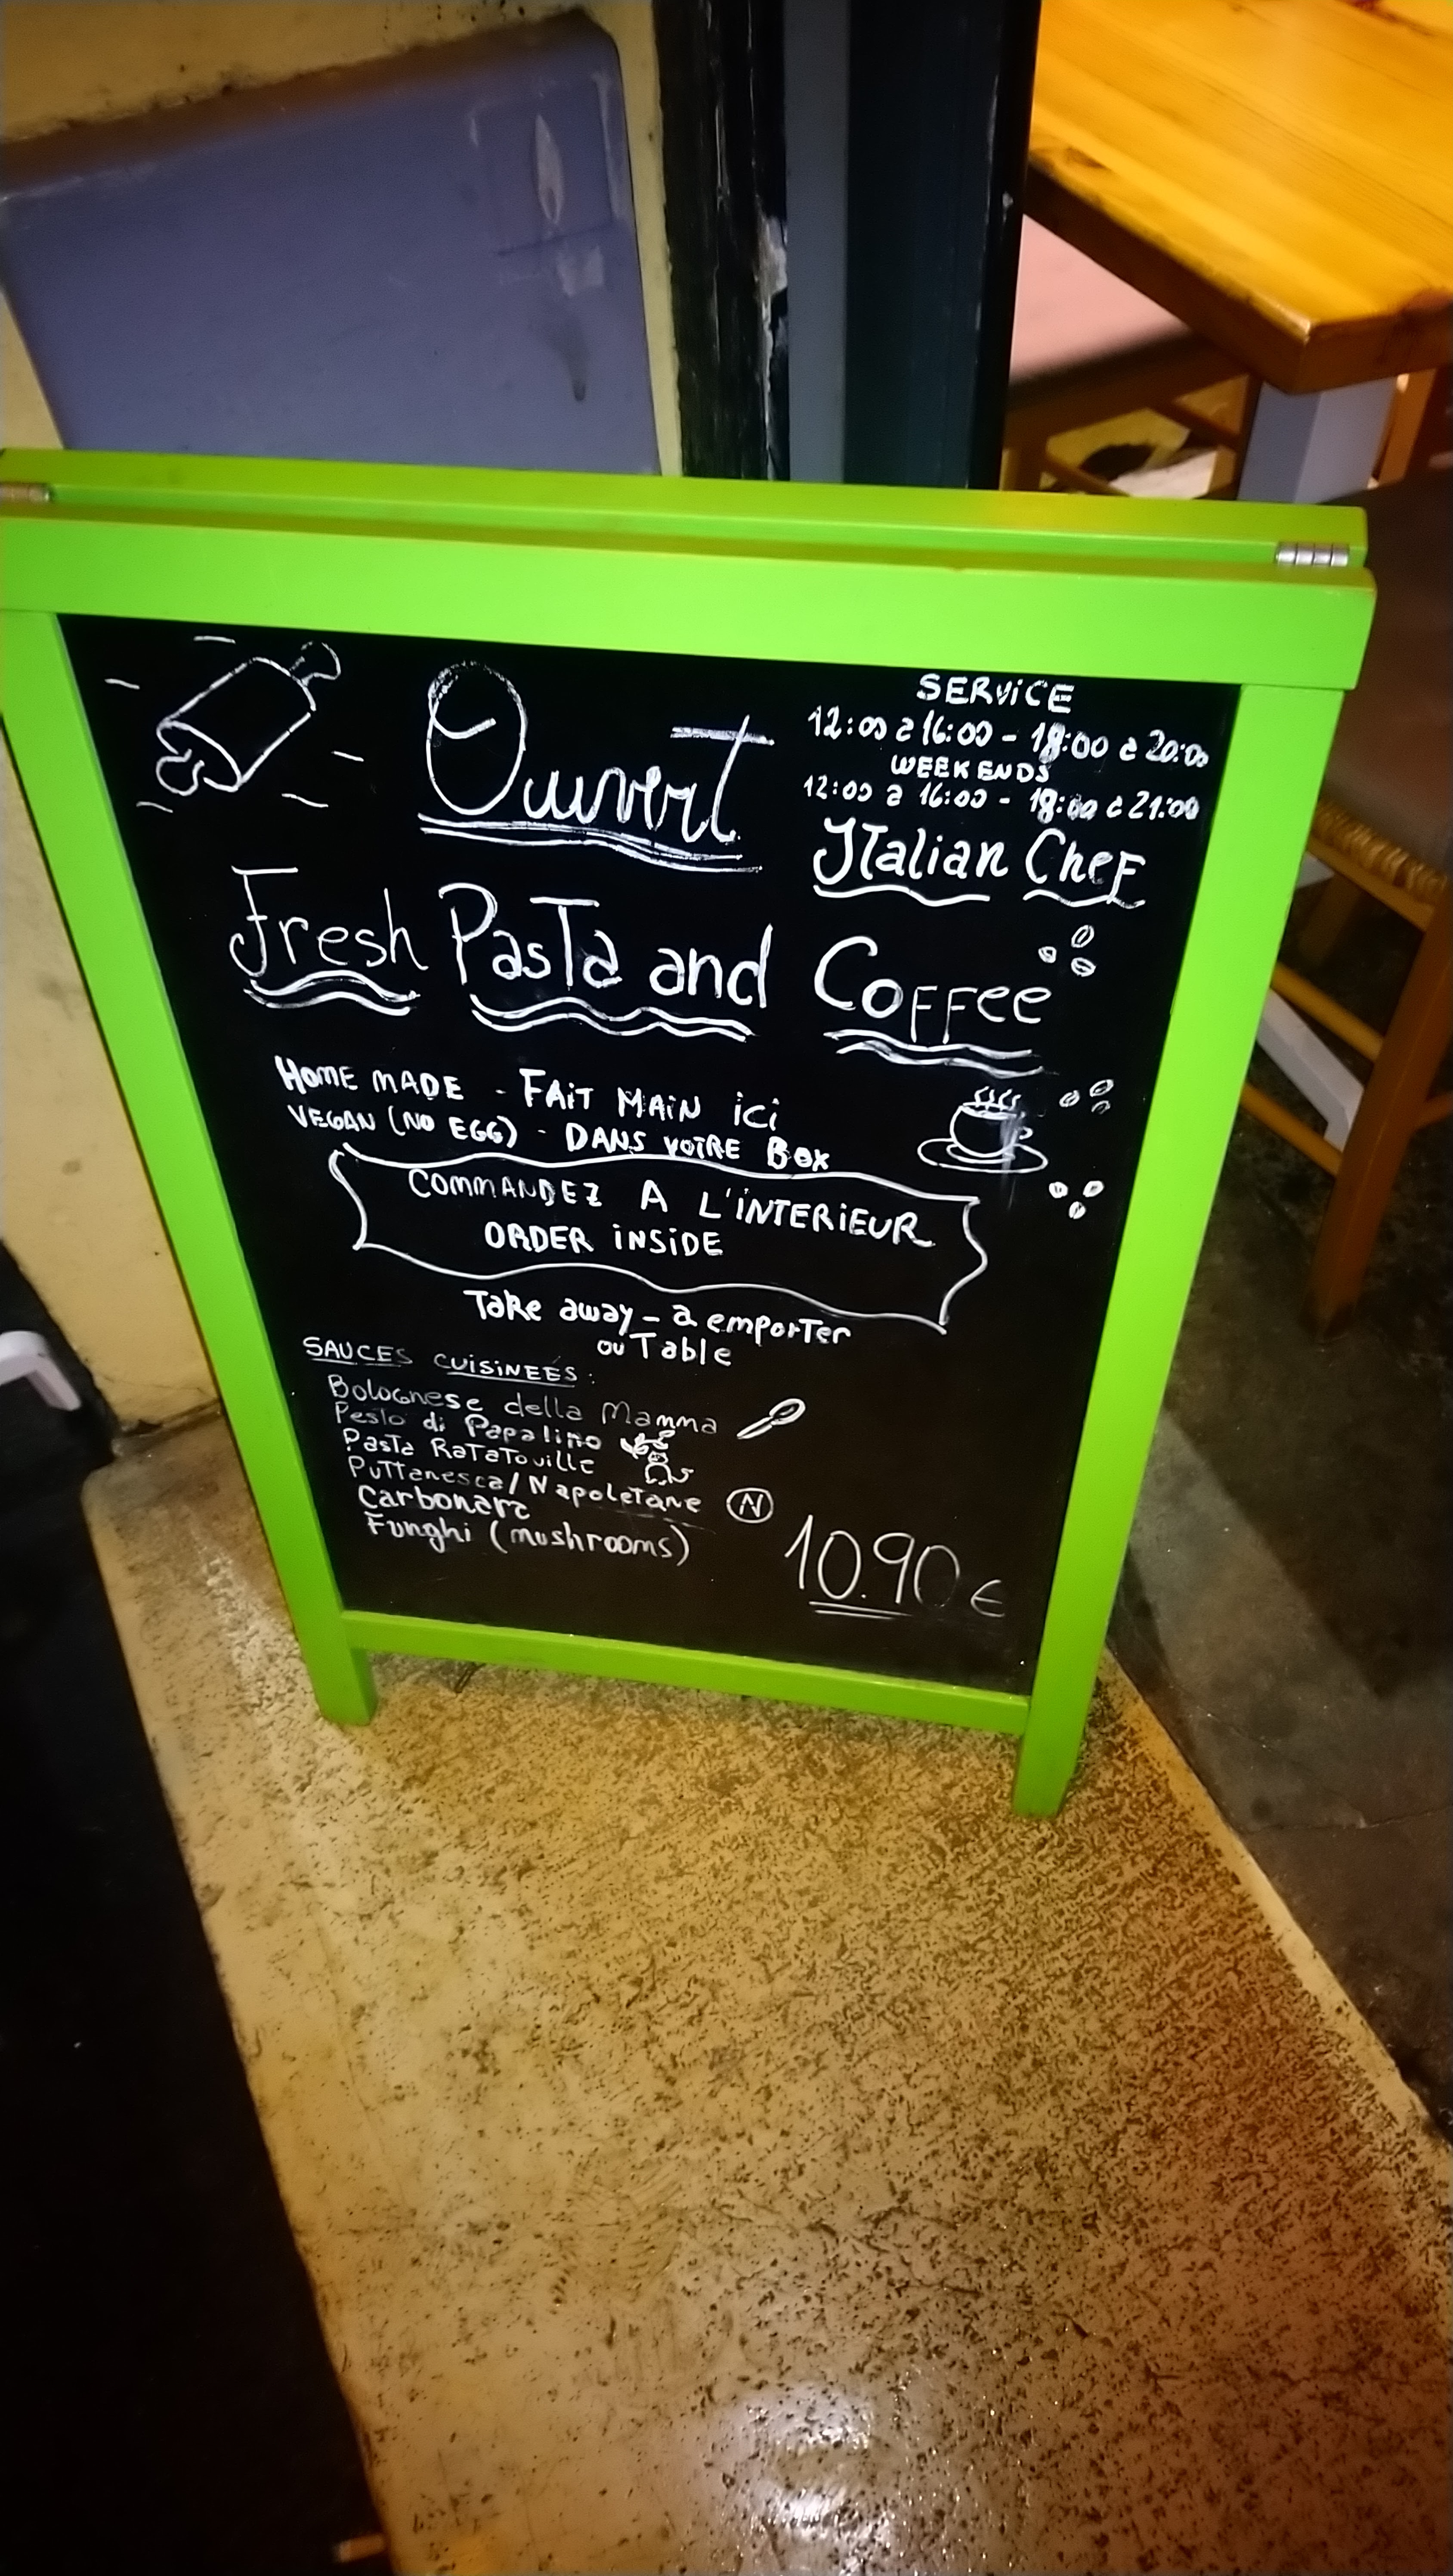 Ouvert
SERVICE
12:00 à 16:00 - 18:00 à 20:00
WEEKENDS
12:00 à 16:00 - 18:00 à 21:00
Italian Chef
Fresh Pasta and Coffee
HOME MADE - FAIT MAIN ici
VEGAN (NO EGG) - DANS VOTRE BOX
COMMANDEZ A L'INTERIEUR
ORDER INSIDE
Take away - à emporter
ou Table
SAUCES CUISINEES:
Bolognese della Mamma
Pesto di Papalino
Pasta RaTaTouille
Puttanesca/Napoletane N
Carbonara
Funghi (mushrooms)
10.90€